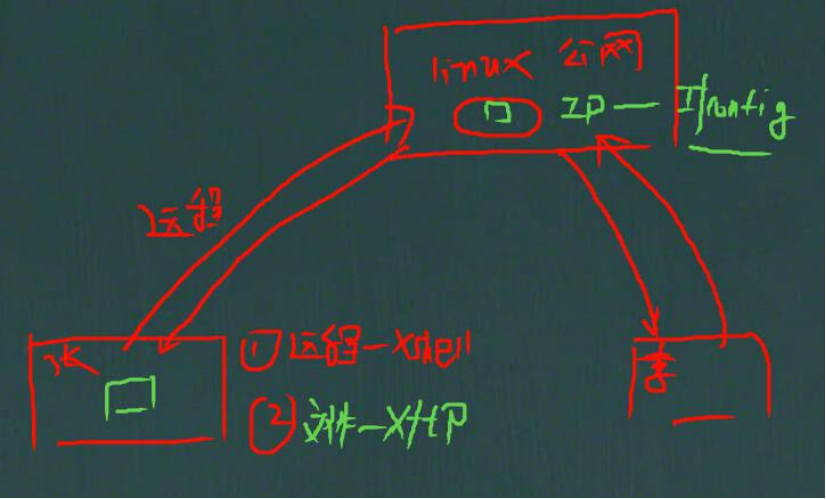 linux 公网
IP — Ifconfig
远程
张
① 远程 — Xshell
② 文件 — Xftp
李